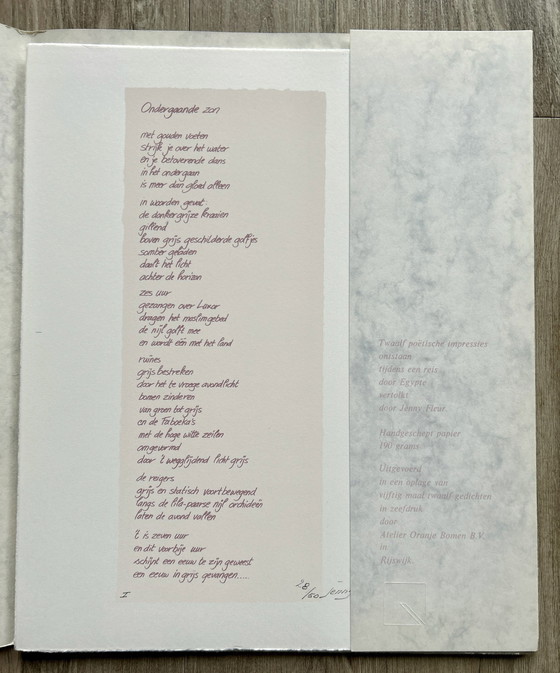 Ondergaande zon
met gouden voeten
strijk je over het water
en je betoverende dans
in het ondergaan
is meer dan gloed alleen
in woorden gevat:
de donkergrijze kraaien
gillend
boven grijs geschilderde golfjes
somber geladen
daalt het licht
achter de horizon
zes uur
gezangen over Luxor
dragen het moslimgebed
de nijl golft mee
en wordt één met het land
ruïnes
grijs bestreken
door het te vroege avondlicht
bomen zinderen
van groen tot grijs
en de faloeka's
met de hoge witte zeilen
omgevormd
door 't wegglijdend licht grijs
de reigers
grijs en statisch voortbewegend
langs de lila-paarse nijl orchideeën
laten de avond vallen
't is zeven uur
en dit voorbije uur
schijnt een eeuw te zijn geweest
een eeuw in grijs gevangen.....
I
28/50 Jenny
Twaalf poëtische impressies
ontstaan
tijdens een reis
door Egypte
vertolkt
door Jenny Fleur.
Handgeschept papier
190 grams
Uitgevoerd
in een oplage van
vijftig maal twaalf gedichten
in zeefdruk
door
Atelier Oranje Bomen B.V.
in
Rijswijk.